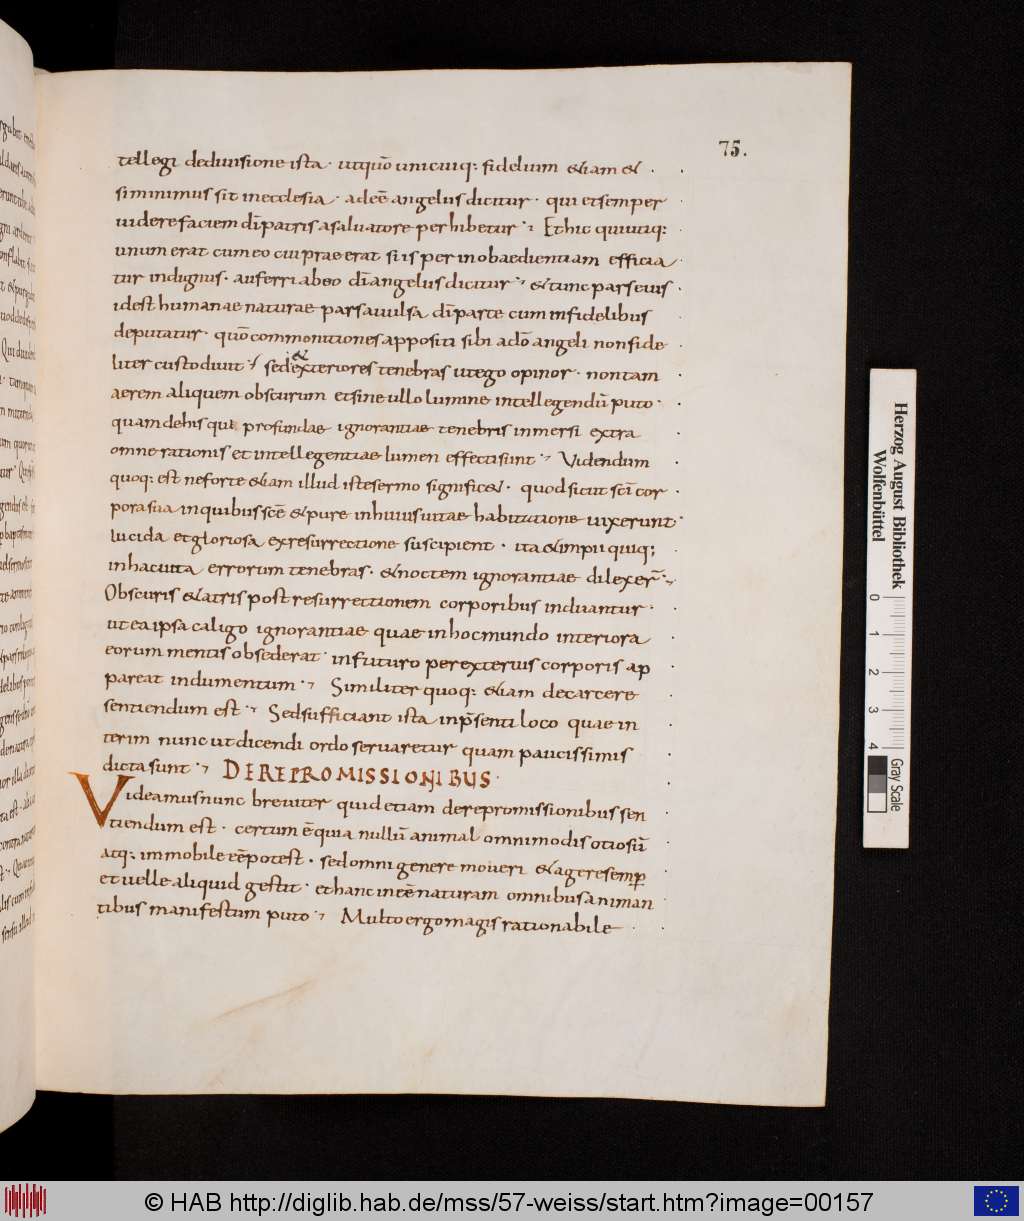 75.
tellegi dediuisione ista · utquō unicuiq: fidelium &iam &
siminimus sit inecclesia · adeē angelus dicitur · qui etsemper
uidere faciem dīpatris asaluatore perhibetur · Ethic quiutiq:
unum erat cumeo cui praeerat si is per inobaedientiam efficia
tur indignus · auferri abeo dīangelus dicitur · &tunc pars eius
idest humanae naturae pars auulsa dīparte cum infidelibus
deputatur · quōcommonitiones appositi sibi adō angeli nonfide
liter custodiuit · sed&exteriores tenebras utego opinor · nontam
aerem aliquem obscurum etsine ullo lumine intellegendū puto ·
quam dehis qui profundae ignorantiae tenebris inmersi extra
omne rationis et intellegentiae lumen effecti sunt · Videndum
quoq: est neforte &iam illud iste sermo signific& · quod sicut scī cor
pora sua inquibus scē &pure inhuius uitae habitatione uixerunt ·
lucida etgloriosa exresurrectione suscipient · ita &impii quiq;
inhacuita errorum tenebras · &noctem ignorantiae dilexer̄ ·
Obscuris &atris post resurrectionem corporibus induantur ·
ut ea ipsa caligo ignorantiae quae inhocmundo interiora
eorum mentis obsederat · infuturo per exterius corporis ap
pareat indumentum · Similiter quoq: &iam decarcere
sentiendum est · Sedsufficiant ista inp̄senti loco quae in
terim nunc ut dicendi ordo seruaretur quam paucissimis
dicta sunt · DEREPROMISSIONIBUS ·
Videamus nunc breuiter quid etiam derepromissionibus sen
tiendum est · certum ē quia nullū animal omnimodis otiosū
atq: immobile eē potest · sedomni genere moueri &agere semp̄
et uelle aliquid gestit · ethanc intē naturam omnibus animan
tibus manifestum puto · Multo ergo magis rationabile
Herzog August Bibliothek
Wolfenbüttel
0 1 2 3 4
Gray Scale
© HAB http://diglib.hab.de/mss/57-weiss/start.htm?image=00157